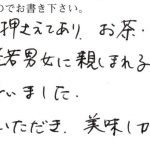 のでお書き下さい。
押さえてあり、お茶・
若男女に親しまれる
いました.
いただき. 美味しか